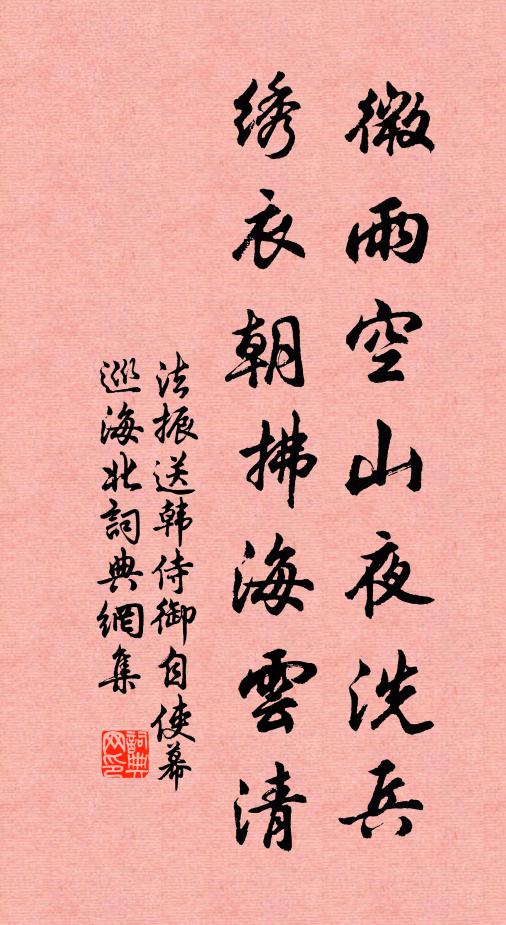 微雨空山夜洗兵
绣衣朝拂海雲清
法振送韩侍御自使幕
巡海北詞典網集
詞典网印